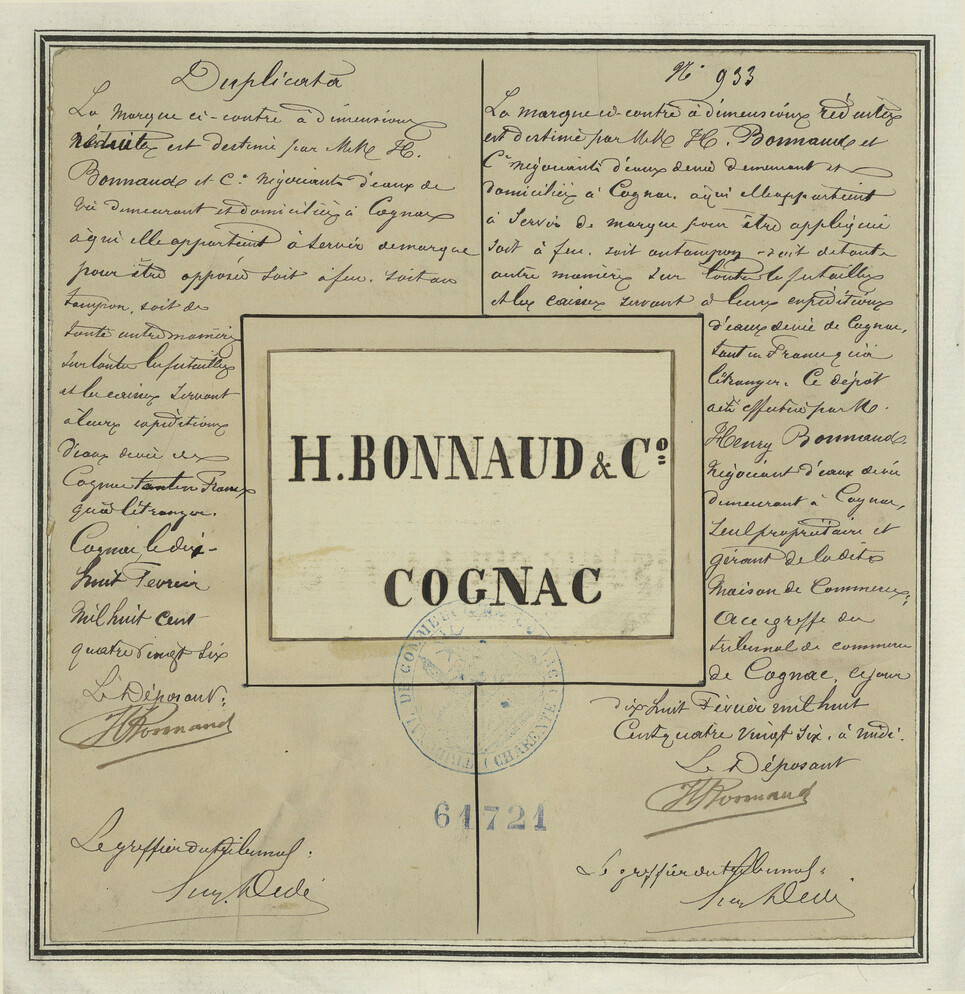 Duplicata
La marque ci-contre à dimensions
réduites est destiné par M.M. H.
Bonnaud et Cº Négociants d'eaux de
vie demeurant et domiciliés à Cognac
à qui elle appartient à servir de marque
pour être opposée soit à feu. soit au
tampon, soit de
toute autre manière
sur toutes les futailles
et les caisses servant
à leurs expéditions
d'eaux de vie de
Cognac tant en France
qu'à l'étranger.
Cognac le dix-
huit Février
Mil huit cent
quatre vingt six
Le Déposant:
H Bonnaud
Le greffier du tribunal:
Nº 933
La marque ci-contre à dimensions réduites
est destiné par M.M. H. Bonnaud et
Cie négociants d'eaux de vie demeurant et
domiciliés à Cognac, à qui elle appartient
à servir de marque pour être appliquée
soit à feu. soit au tampon - soit de toute
autre manière sur toutes les futailles
et les caisses servant à leurs expéditions
d'eaux de vie de Cognac,
tant en France qu'à
l'étranger. Ce dépôt
a été effectué par M.
Henry Bonnaud
Négociant d'eaux de vie
demeurant à Cognac,
seul propriétaire et
gérant de la dite
Maison de Commerce,
au greffe du
tribunal de commerce
de Cognac, ce jour
dix huit Février mil huit
Cent quatre vingt six, à midi.
Le Déposant
H Bonnaud
Le greffier du tribunal:
H. BONNAUD & Cº
COGNAC
DE COMMERCE DE COGNAC
(CHARENTE)
61721